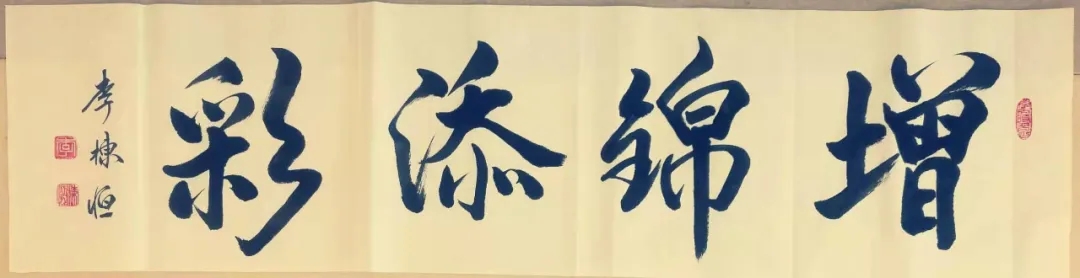 增錦添彩
李棟恒